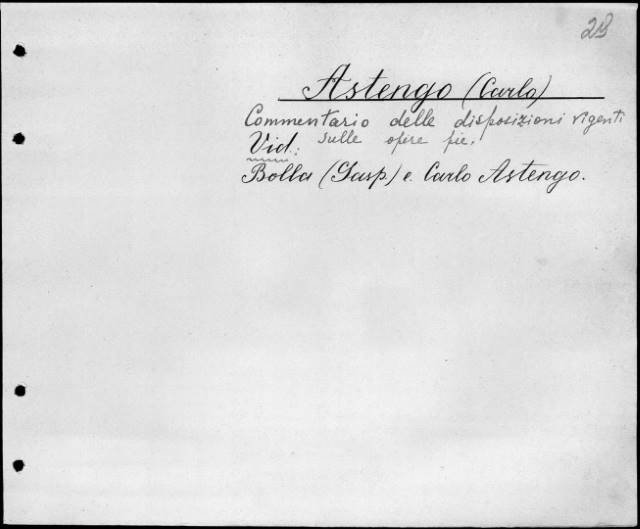 28
Astengo (Carlo)
Commentario delle disposizioni vigenti
Vid.: sulle opere pie.
Bolla (Gasp.) e Carlo Astengo.